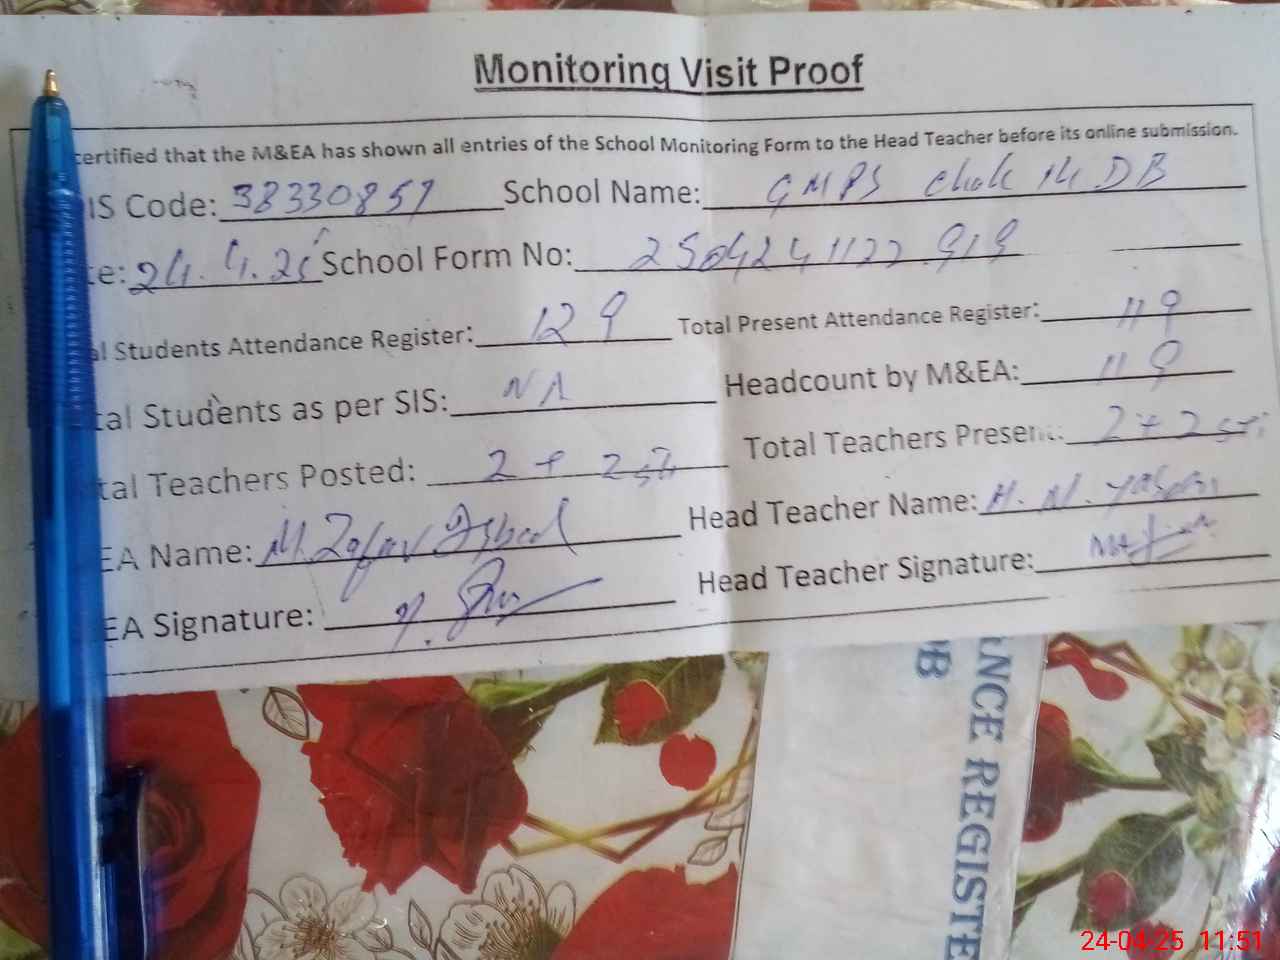 Monitoring Visit Proof
certified that the M&EA has shown all entries of the School Monitoring Form to the Head Teacher before its online submission.
IS Code: 38330859 School Name: GMPS Chak 14 DB
te: 24.4.25 School Form No: 2504241122919
al Students Attendance Register: 129 Total Present Attendance Register: 119
tal Students as per SIS: NA Headcount by M&EA: 119
tal Teachers Posted: 2 + 2 sti Total Teachers Present: 2 + 2 sti
EA Name: M. Zafar Head Teacher Name: H. M. Yaseen
EA Signature: Head Teacher Signature:
NCE REGISTE
DB
24-04-25 11:51